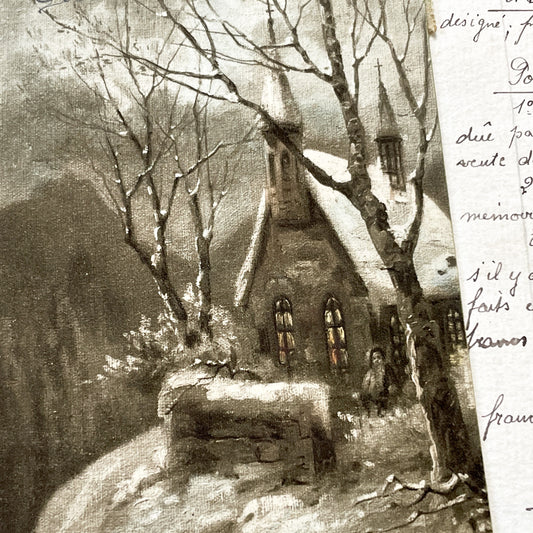 désigné; f
Po
1º
dûe pa
vente d
2
memoir
s'il y a
faits e
francs
franc